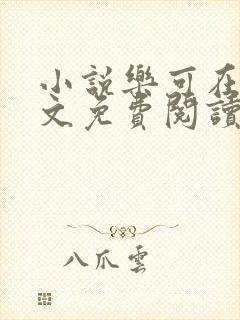 小說樂可在
文免費閱讀
八爪雲